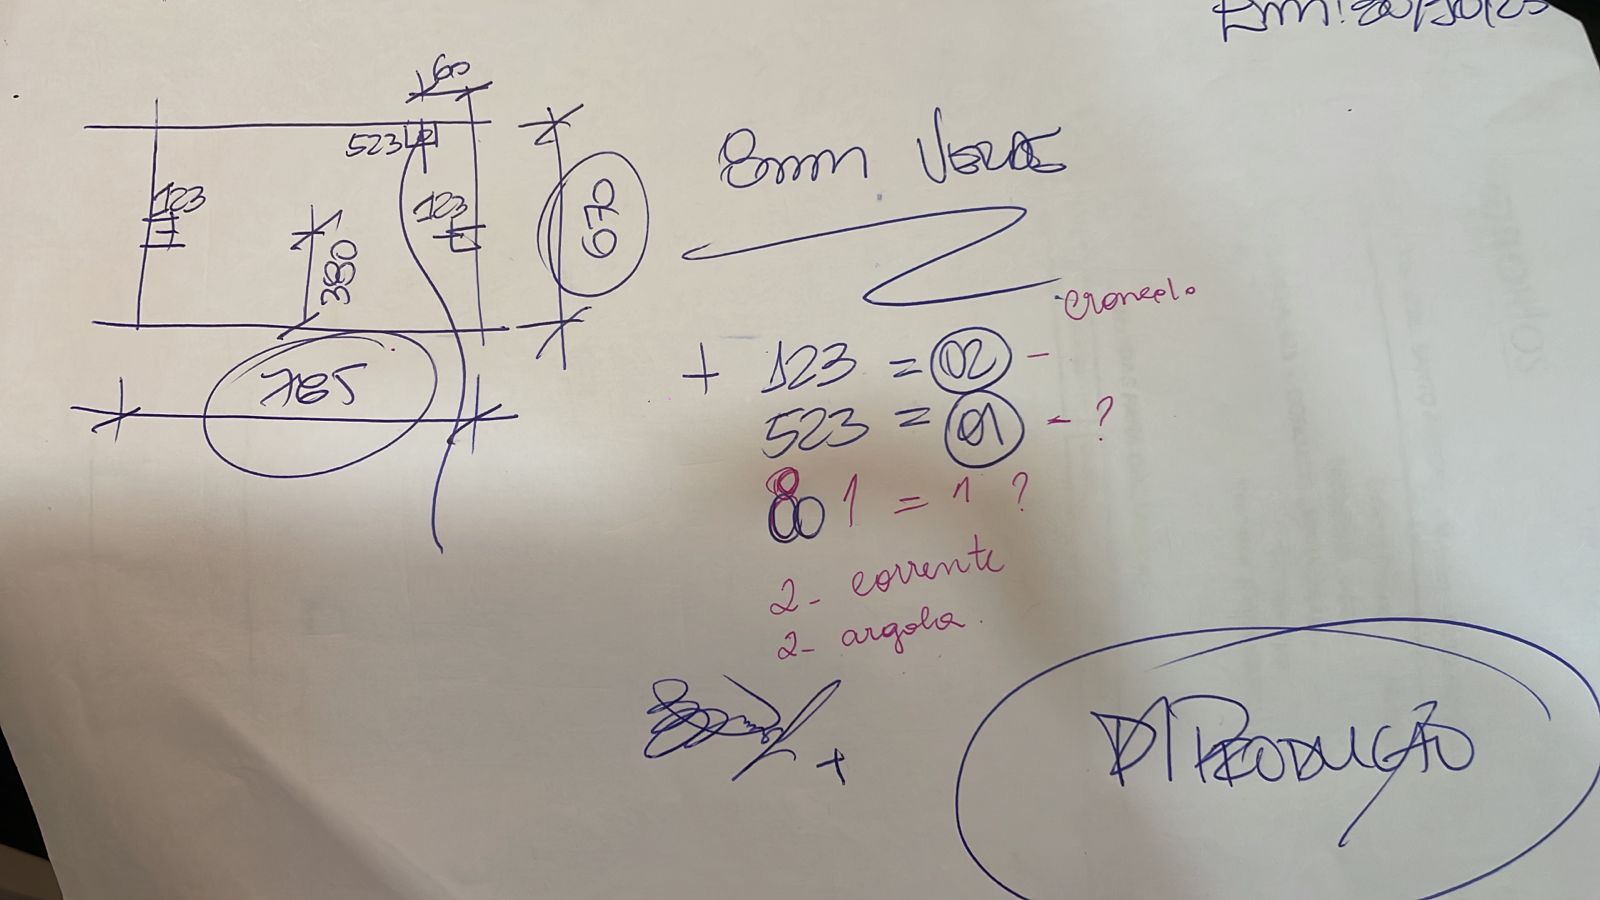 60
523
123
123
380
670
765
8mm VERDE
cromado
+ 123 = 02 -
523 = 01 - ?
801 = 1 ?
2- corrente
2- argola
P/ PRODUÇÃO